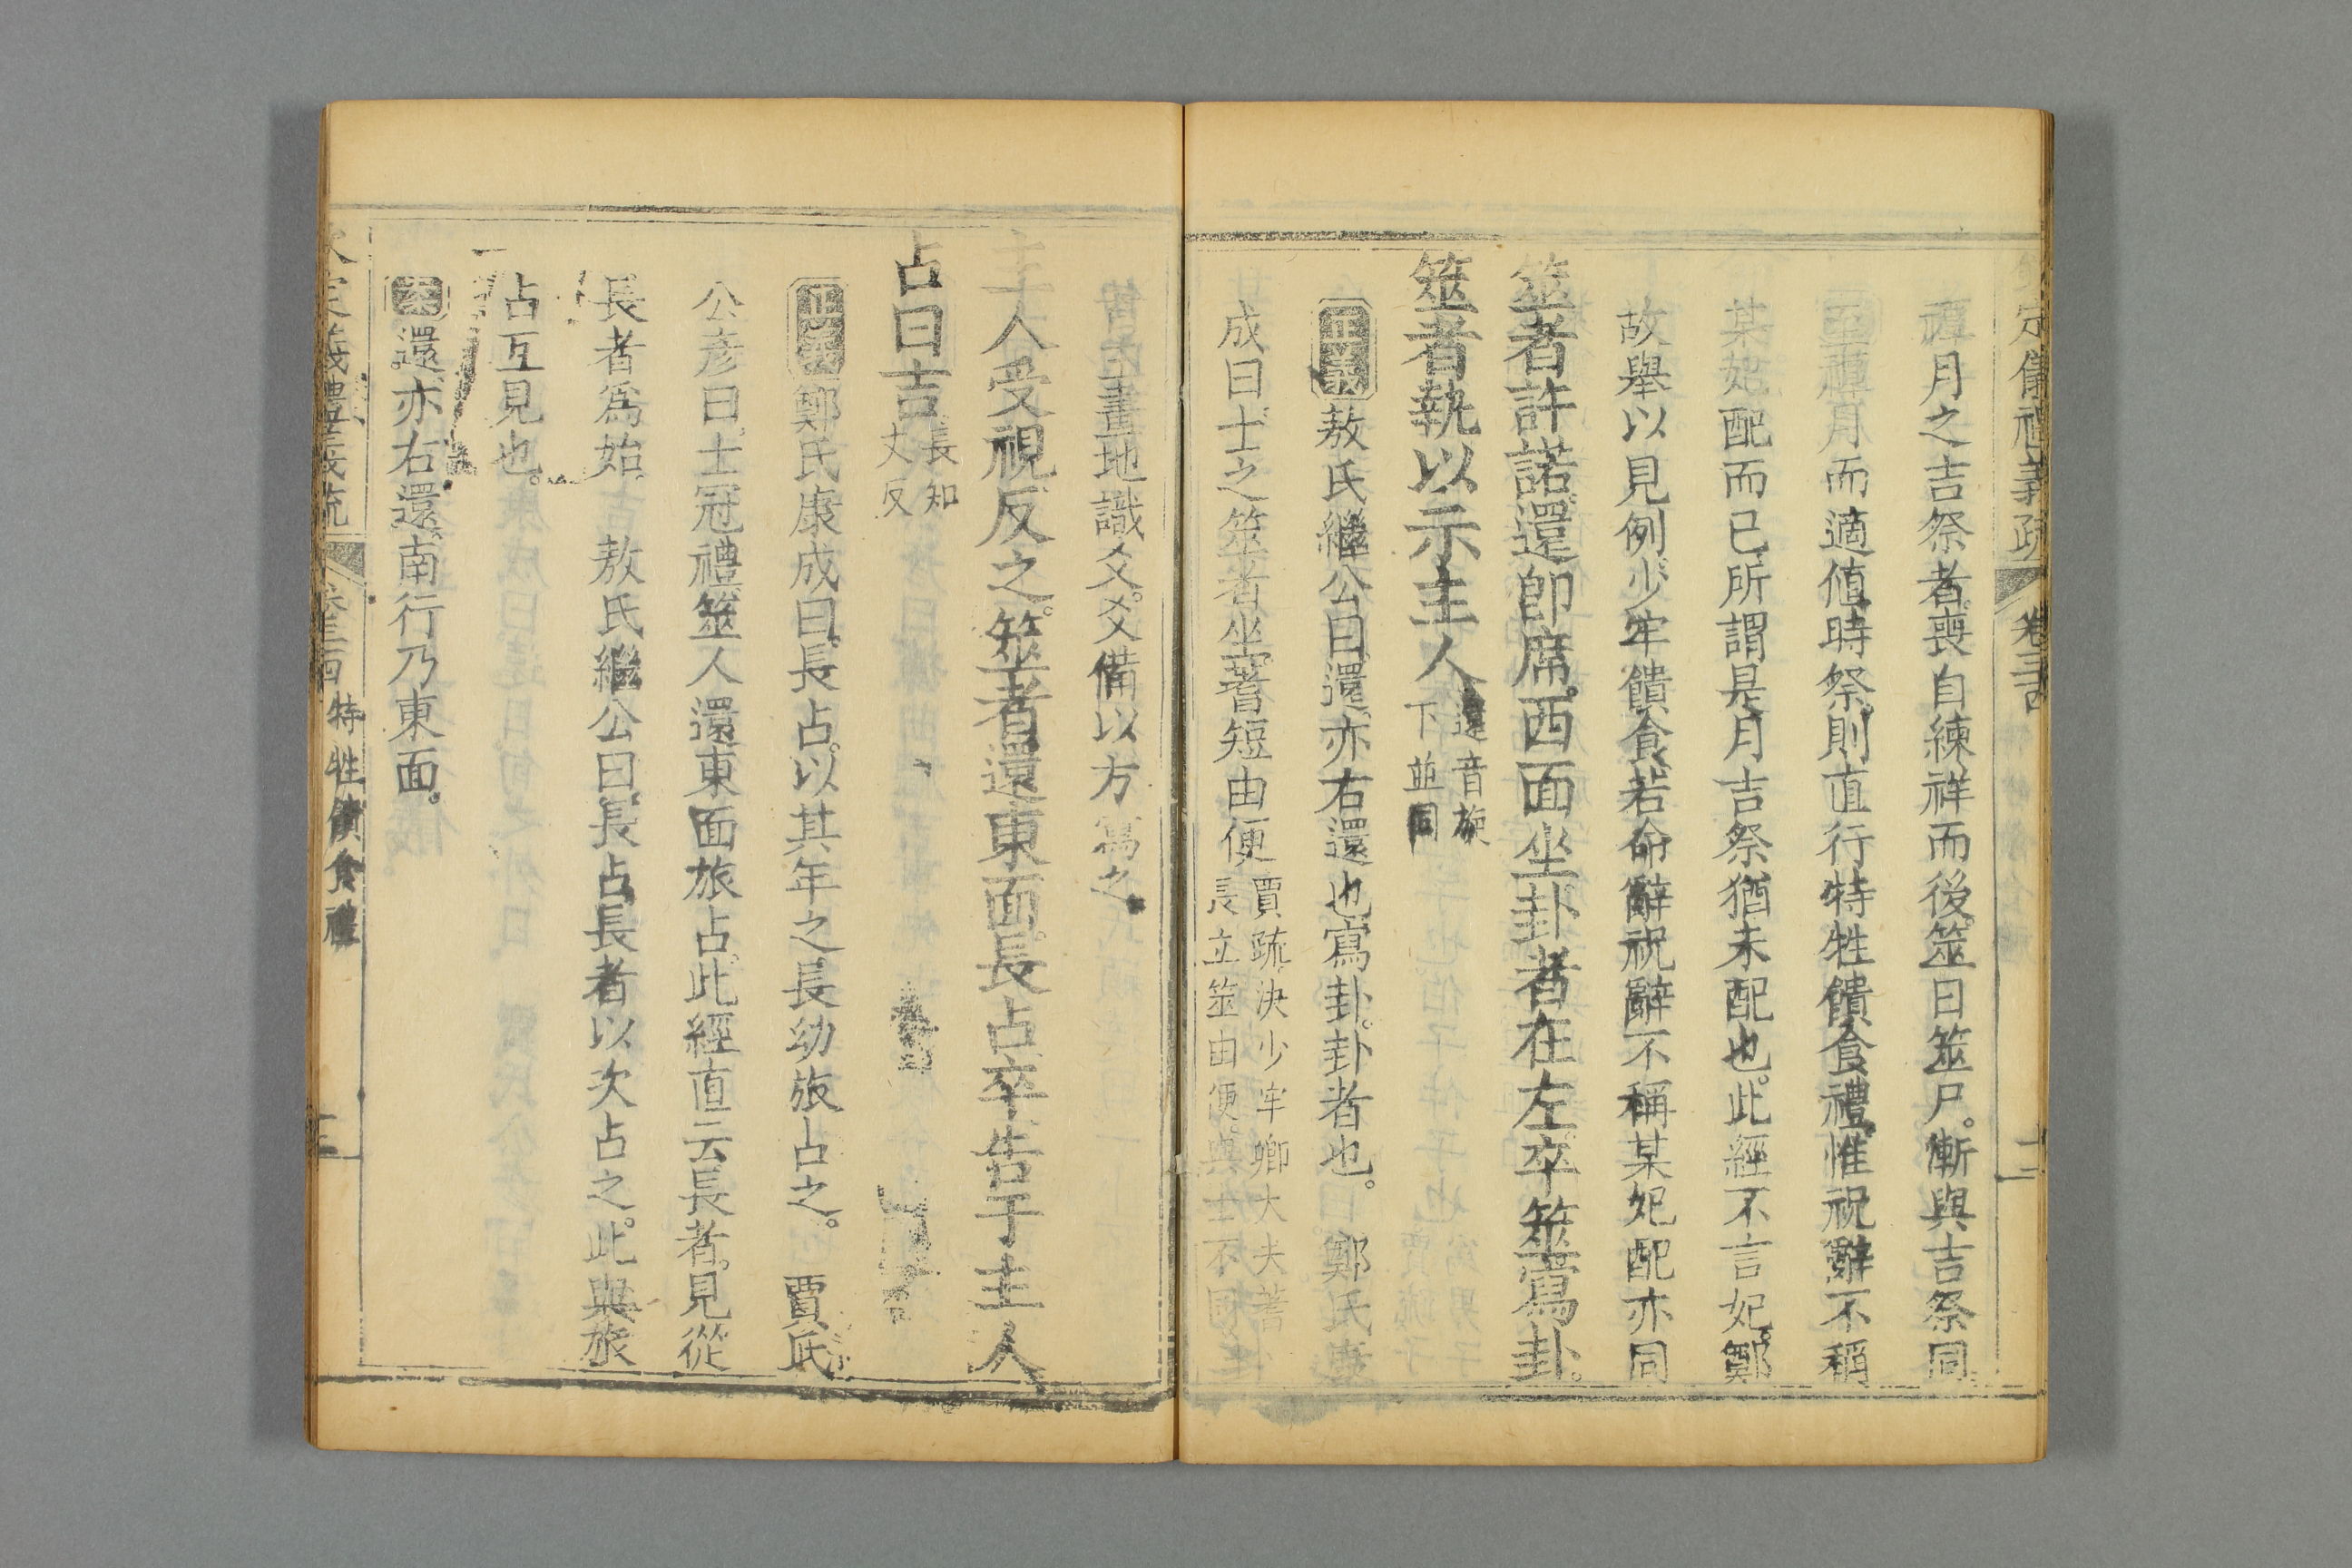 定儀禮義疏 卷三十四
禫月之吉祭者喪自練祥而後筮日筮尸漸與吉祭同
至禫月而適値時祭則直行特牲饋食禮惟祝辭不稱
某妃配而已所謂是月吉祭猶未配也此經不言妃鄭
故舉以見例少牢饋食若命辭祝辭不稱某妃配亦同
筮者許諾還卽席西面坐卦者在左卒筮寫卦
筮者執以示主人還音旋下並同
正義敖氏繼公曰還亦右還也寫卦卦者也 鄭氏康
成曰士之筮者坐蓍短由便賈疏決少牢卿大夫蓍長立筮由便與士不同
畫地識爻爻備以方寫之
主人受視反之筮者還東面長占卒告于主人
占曰吉長知丈反
正義鄭氏康成曰長占以其年之長幼旅占之 賈氏
公彥曰士冠禮筮人還東面旅占此經直云長者見從
長者爲始 敖氏繼公曰長占長者以次占之此與旅
占互見也
案還亦右還南行乃東面
義禮義疏 卷三十四 特牲饋食禮